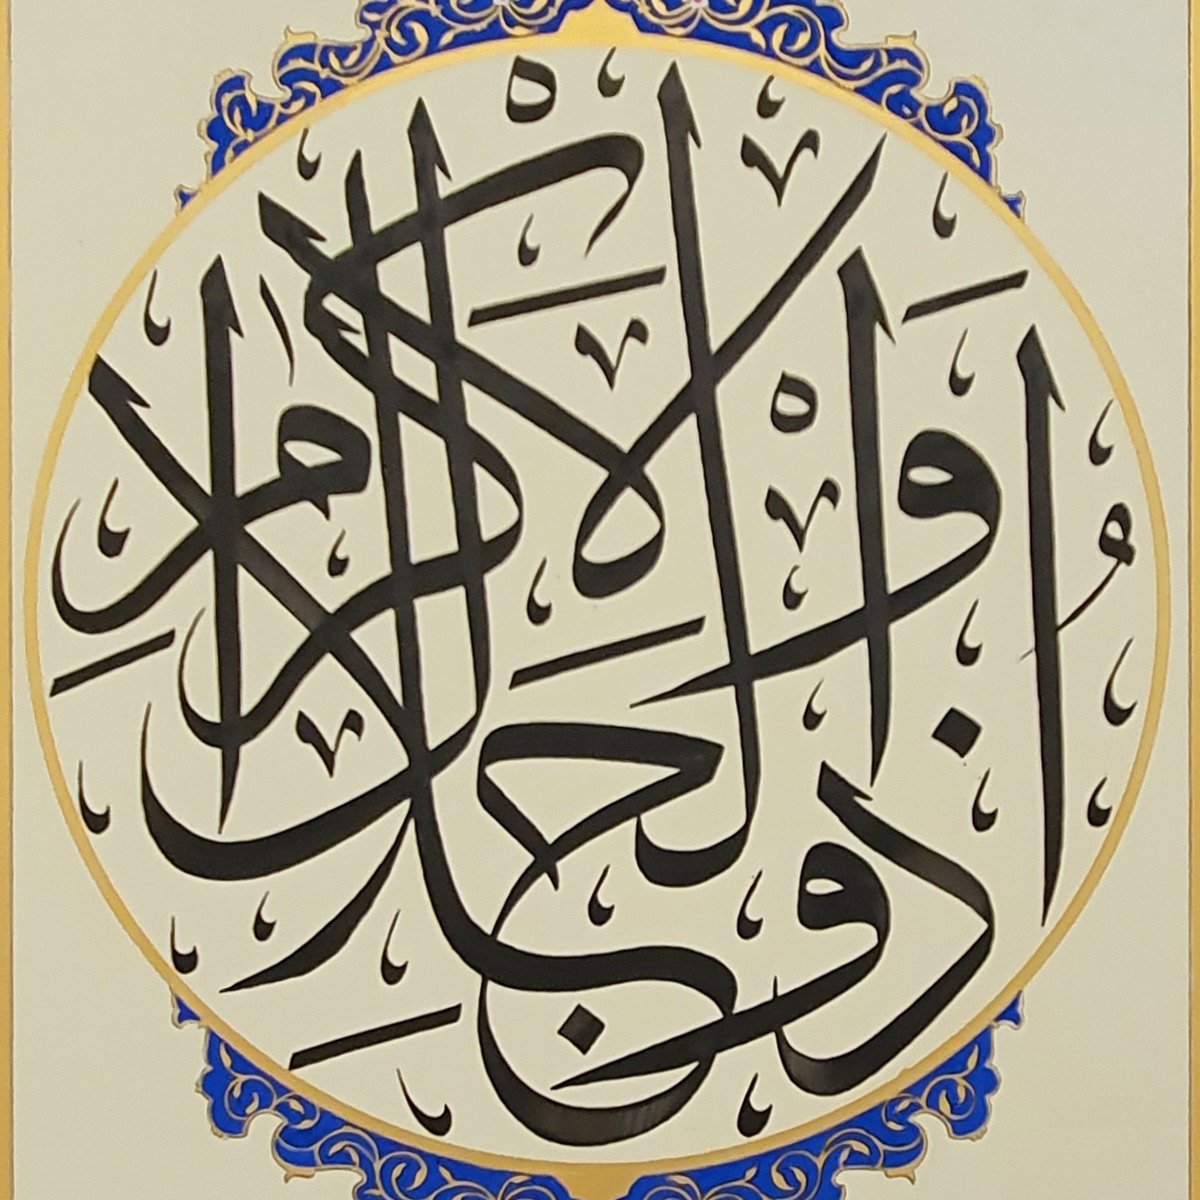 ذُو الْجَلَالِ وَالْإِكْرَامِ